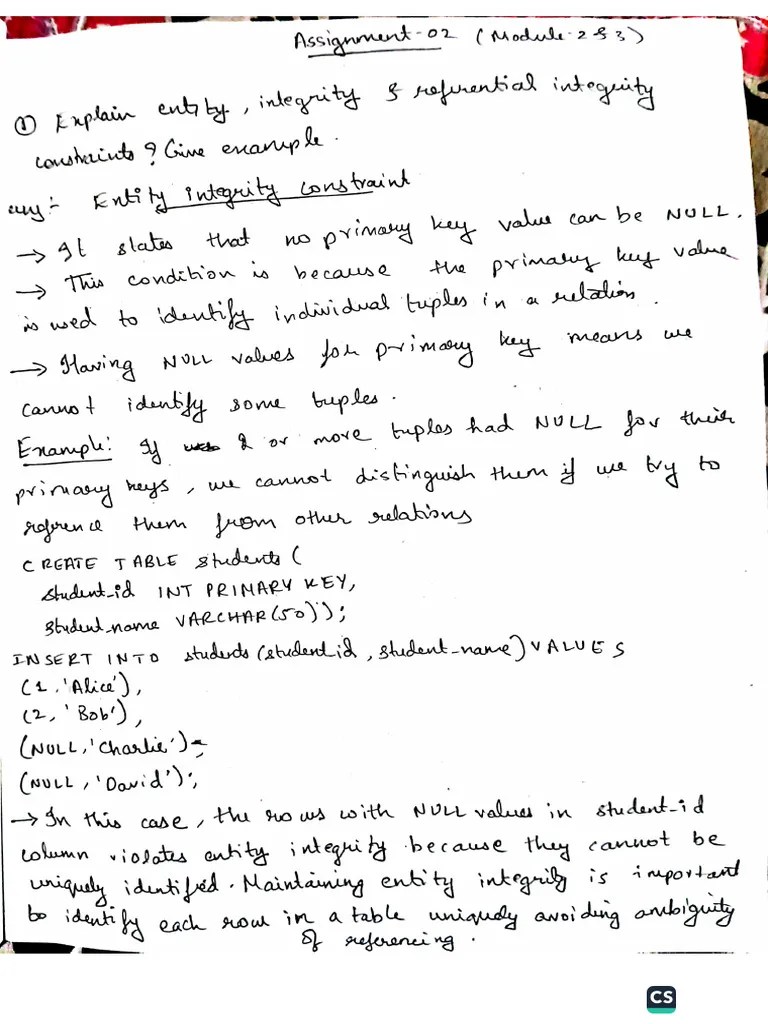 Assignment-02 (Module-2 & 3)
① Explain entity, integrity & referential integrity
constraints? Give example.
Entity integrity constraint
→ It states that no primary key value can be NULL.
→ This condition is because the primary key value
is used to identify individual tuples in a relation.
→ Having NULL values for primary key means we
cannot identify some tuples.
Example: If 2 or more tuples had NULL for their
primary keys, we cannot distinguish them if we try to
reference them from other relations
CREATE TABLE students (
student_id INT PRIMARY KEY,
student_name VARCHAR(50));
INSERT INTO students (student_id, student_name) VALUES
(1, 'Alice'),
(2, 'Bob'),
(NULL, 'Charlie'),
(NULL, 'David');
→ In this case, the rows with NULL values in student_id
column violates entity integrity because they cannot be
uniquely identified. Maintaining entity integrity is important
to identify each row in a table uniquely avoiding ambiguity
of referencing.
CS